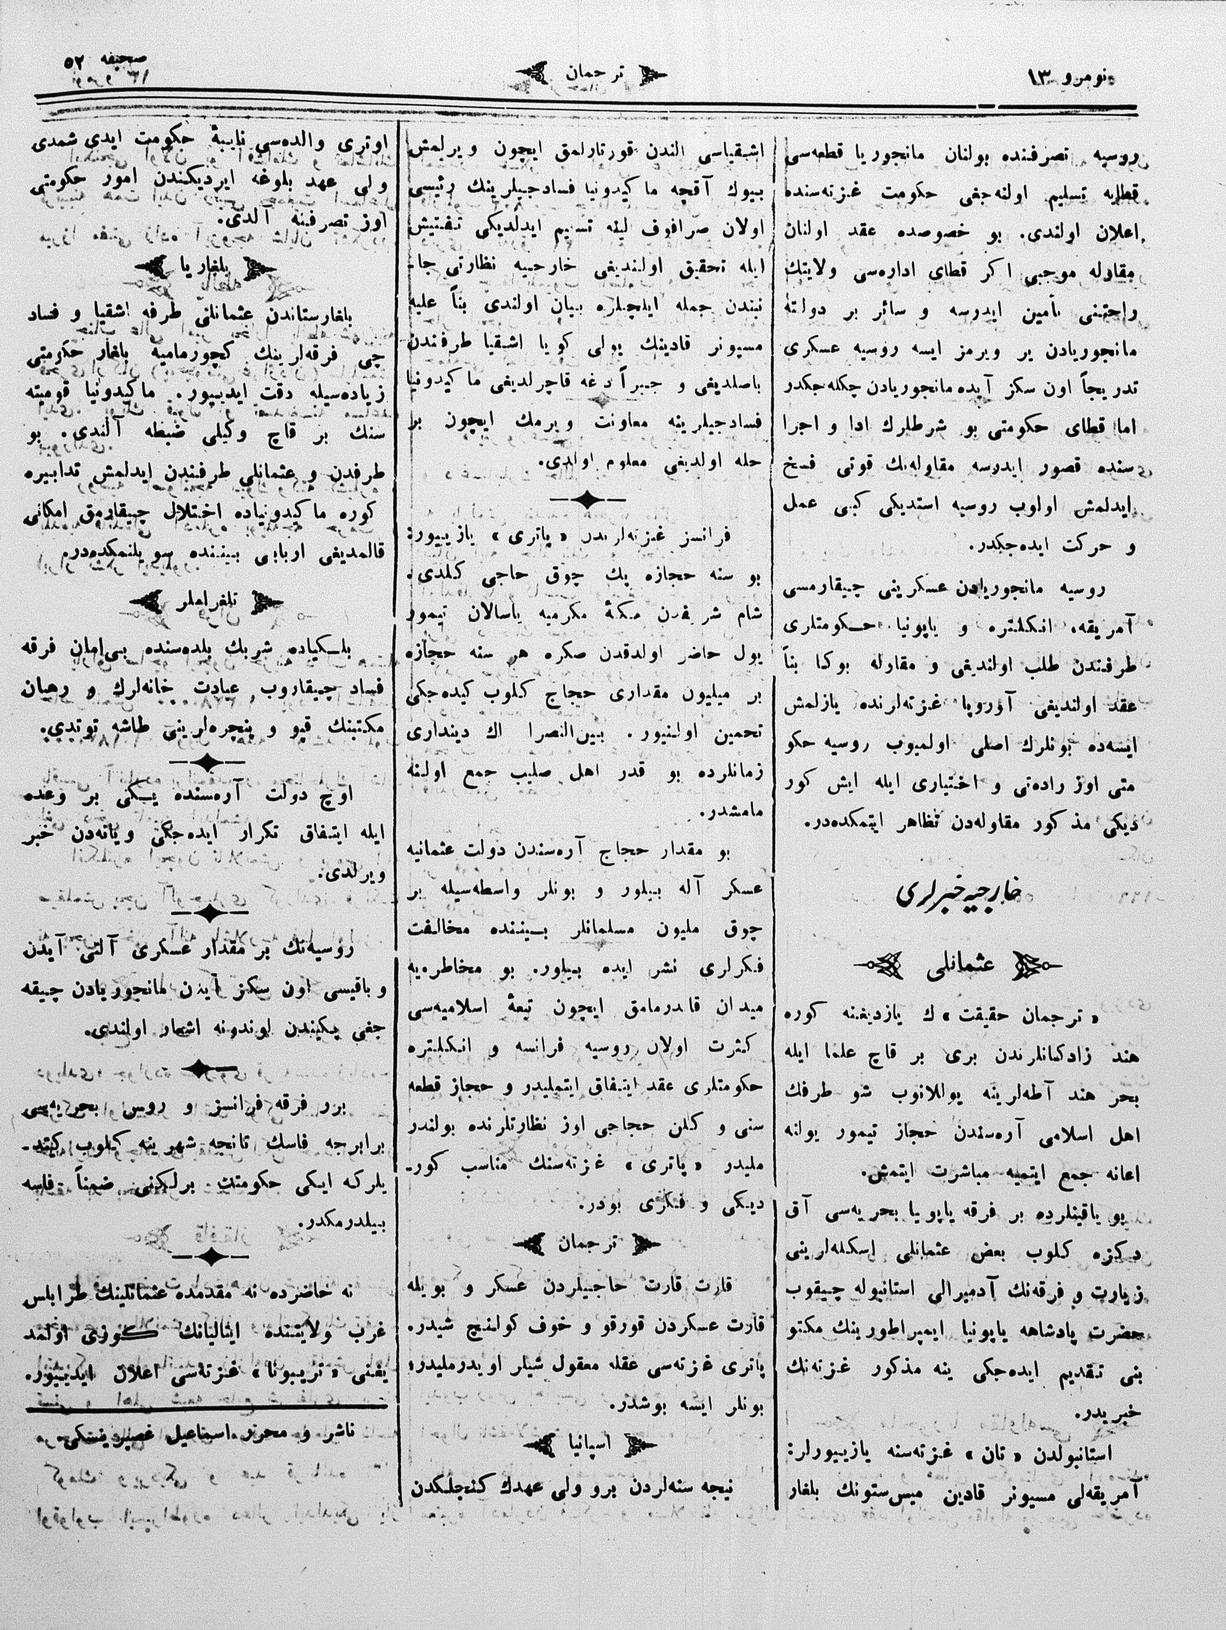 نومرو ١٣
ترجمان
صحیفه ٥٢
روسیه تصرفنده بولنان مانجوریا قطعه‌سی
قطایه تسلیم اولنه‌جغی حکومت غزته‌سنده
اعلان اولندی. بو خصوصده عقد اولنان
مقاوله موجبی اکر قطای اداره‌سی ولایتك
راحتنی تأمین ایدرسه و سائر بر دولته
مانجوریادن یر ویرمز ایسه روسیه عسکری
تدریجاً اون سکز آیده مانجوریادن چکله‌جکدر
اما قطای حکومتی بو شرطلرك ادا و اجرا
سنده قصور ایدرسه مقاوله‌نك قوتی فسخ
ایدلمش اولوب روسیه استدیکی کبی عمل
و حرکت ایده‌جکدر.
روسیه مانجوریادن عسکرینی چیقارمسی
آمریقه، انکلتره و یاپونیا حکومتلری
طرفندن طلب اولندیغی و مقاوله بوکا بناً
عقد اولندیغی آوروپا غزته‌لرنده یازلمش
ایسه‌ده بونلرك اصلی اولمیوب روسیه حکو
متی اوز راده‌تی و اختیاری ایله ایش کور
دیکی مذکور مقاوله‌دن تظاهر ایتمکده‌در.
خارجیه خبرلری
عثمانلی
«ترجمان حقیقت»ك یازدیغنه کوره
هند زادکانلرندن بری بر قاچ علما ایله
بحر هند آطه‌لرینه یوللانوب شو طرفك
اهل اسلامی آره‌سندن حجاز تیمور یولنه
اعانه جمع ایتمیه مباشرت ایتمش.
بو یاقینلرده بر فرقه یاپویا بحریه‌سی آق
دکزه کلوب بعض عثمانلی اسکله‌لرینی
زیارت و فرقه‌نك آدمیرالی استانبوله چیقوب
حضرت پادشاهه یاپونیا ایمپراطورینك مکتو
بنی تقدیم ایده‌جکی ینه مذکور غزته‌نك
خبریدر.
استانبولدن «تان» غزته‌سنه یازیپورلر:
آمریقه‌لی مسیونر قادین میس‌ستونك بلغار
اشقیاسی الندن قورتارلمق ایچون ویرلمش
بیوك آقچه ماکیدونیا فسادجیلرینك رئیسی
اولان صرافوف لینه تسلیم ایدلدیکی تفتیش
ایله تحقیق اولندیغی خارجیه نظارتی جا-
نبندن جمله ایلچیلره بیان اولندی بناً علیه
مسیونر قادینك یولی کویا اشقیا طرفندن
باصلدیغی و جبراً دغه قاچرلدیغی ماکیدونیا
فسادجیلرینه معاونت ویرمك ایچون بر
حله اولدیغی معلوم اولدی.
فرانسز غزته‌لرندن «پاتری» یازییور:
بو سنه حجازه پك چوق حاجی کلدی.
شام شریفدن مکۀ مکرمیه یاسالان تیمور
یول حاضر اولدقدن صکره هر سنه حجازه
بر میلیون مقداری حجاج کلوب کیده‌جکی
تحمین اولنیور. بین‌النصرا اك دینداری
زمانلرده بو قدر اهل صلیب جمع اولنه
مامشدر.
بو مقدار حجاج آره‌سندن دولت عثمانیه
عسکر آله بیلور و بونلر واسطه‌سیله بر
چوق ملیون مسلمانلر بیننده مخالفت
فکرلری نشر ایده بیلور. بو مخاطره‌یه
میدان قالدرمامق ایچون تبعۀ اسلامیه‌سی
کثرت اولان روسیه فرانسه و انکلتره
حکومتلری عقد ایتفاق ایتملیدر و حجاز قطعه
سنی و کلن حجاجی اوز نظارتلرنده بولندر
ملیدر «پاتری» غزته‌سنك مناسب کور-
دیکی و فکری بودر.
ترجمان
قارت قارت حاجیلردن عسکر و بویله
قارت عسکردن قورقو و خوف کولنچ شیدر.
پاتری غزته‌سی عقله معقول شیلر اویدرملیدر؛
بونلر ایسه بوشدر.
اسپانیا
نیجه سنه‌لردن برو ولی عهدك کنجلکدن
اوتری والده‌سی نایبۀ حکومت ایدی شمدی
ولی عهد بلوغه ایردیکندن امور حکومتی
اوز تصرفنه آلدی.
بلغاریا
بلغارستاندن عثمانلی طرفه اشقیا و فساد
جی فرقه‌لرینك کچورمامیه بلغار حکومتی
زیاده‌سیله دقت ایدییور. ماکیدونیا قومیته
سنك بر قاچ وکیلی ضبطه آلندی. بو
طرفدن و عثمانلی طرفندن ایدلمش تدابیره
کوره ماکیدونیاده اختلال چیقارمق امکانی
قالمدیغی اربابی بیننده سویلنمکده‌در.
تلغرافلر
بلکیاده شربك بلده‌سنده بی‌امان فرقه
فساد چیقاروب عبادت خانه‌لرك و رهبان
مکتبنك قپو و پنچره‌لرینی طاشه توتدی.
اوچ دولت آره‌سنده یکی بر وعده
ایله ایتفاق تکرار ایده‌جکی ویانه‌دن خبر
ویرلدی.
روسیه‌نك بر مقدار عسکری آلتی آیدن
و باقیسی اون سکز آیدن مانجوریادن چیقه
جغی پکیندن لوندونه اشعار اولندی.
برر فرقه فرانسز و روس بحریه‌سی
برابرجه فاسك تانجه شهرینه کلوب کتد-
یلرکه ایکی حکومتك برلکنی ضمناً فاسه
بیلدرمکدر.
نه حاضرده نه مقدمده عثمانلینك طرابلس
غرب ولایتنده ایتالیانك کوزی اولمد
یغنی «تریبونا» غزته‌سی اعلان ایدییور.
ناشر و محرر اسماعیل غصپرینسکی